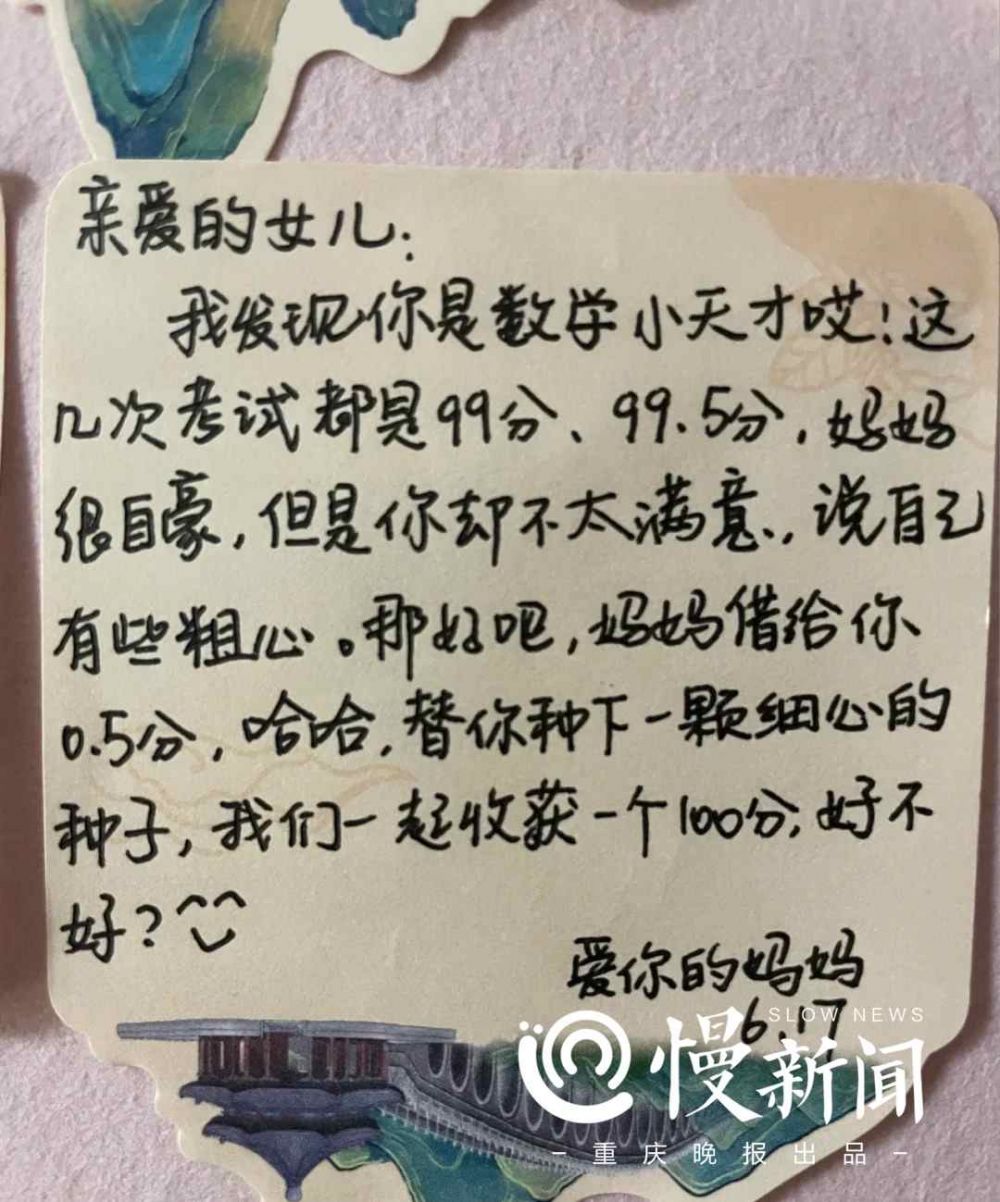 亲爱的女儿：
我发现你是数学小天才哎！这
几次考试都是99分、99.5分，妈妈
很自豪，但是你却不太满意，说自己
有些粗心。那好吧，妈妈借给你
0.5分，哈哈，替你种下一颗细心的
种子，我们一起收获一个100分，好不
好？^^
爱你的妈妈
6.17
SLOW NEWS
慢新闻
－重庆晚报出品－